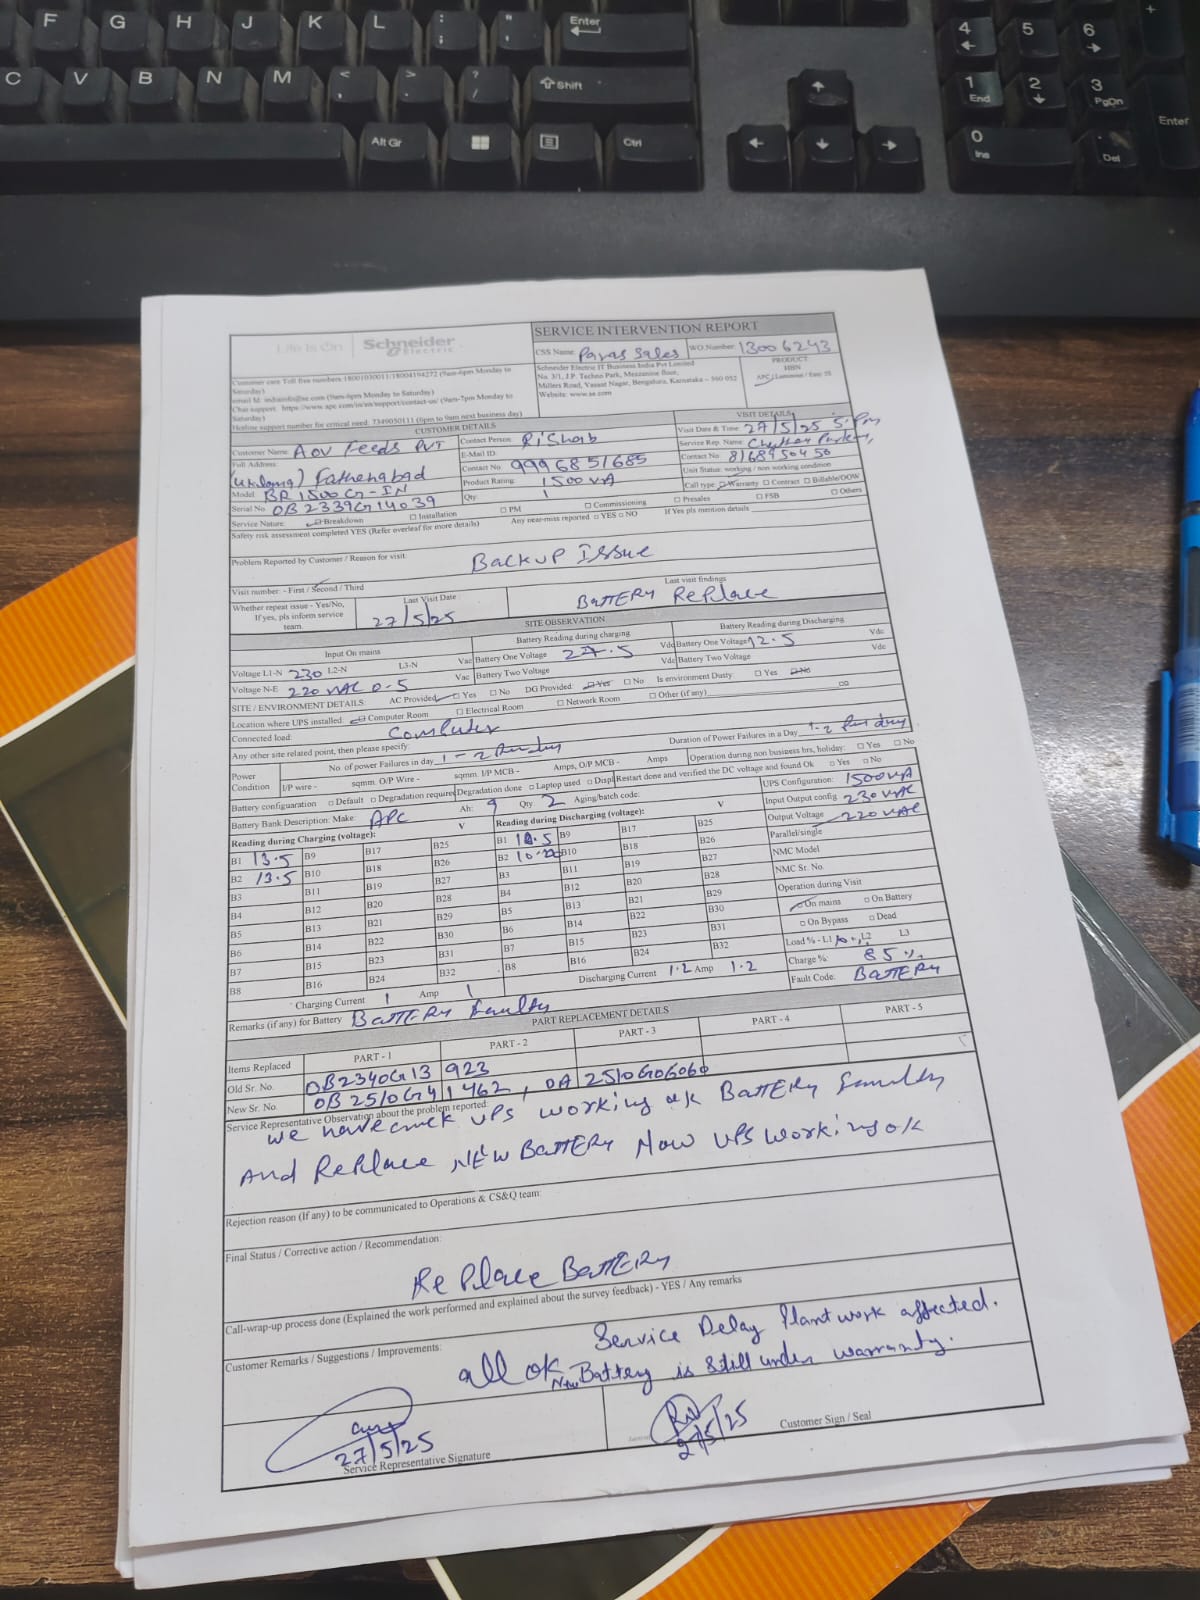 F G H J K L : ; " ' Enter
C V B N M < , > . ? / Shift
Alt Gr Ctrl
4 5 6
1 End 2 3 PgDn
0 Ins Del Enter
Life Is On Schneider Electric
SERVICE INTERVENTION REPORT
CSS Name: Paras Sales WO Number: 13006243
Customer care Toll free numbers:18001030011/18004194272 (9am-6pm Monday to Saturday)
email Id: indiainfo@se.com (9am-6pm Monday to Saturday)
Chat support: https://www.apc.com/in/en/support/contact-us/ (9am-7pm Monday to Saturday)
Hotline support number for critical need: 7349050111 (6pm to 9am next business day)
Schneider Electric IT Business India Pvt Limited
No. 3/1, J.P. Techno Park, Mezzanine floor,
Millers Road, Vasant Nagar, Bengaluru, Karnataka – 560 052
Website: www.se.com
PRODUCT
HBN
APC / Luminous /
CUSTOMER DETAILS
VISIT DETAILS
Customer Name: AOV Feeds PVT
Contact Person: Rishab
Visit Date & Time: 27/5/25 5:Pm
Full Address:
E-Mail ID:
Service Rep. Name:
(Uklana) Fathehabad
Contact No 9996851685
Contact No. 8168950450
Model: BR 1500G-IN
Product Rating: 1500 VA
Unit Status: working / non working condition
Serial No OB2339G14039
Qty: 1
Call type: Warranty Contract Billable/OOW
Service Nature: Breakdown Installation PM Commissioning Presales FSB Others
Safety risk assessment completed YES (Refer overleaf for more details) Any near-miss reported YES NO If Yes pls mention details
Problem Reported by Customer / Reason for visit: Backup Issue
Visit number: - First / Second / Third
Whether repeat issue - Yes/No, If yes, pls inform service team.
Last Visit Date
27/5/25
Last visit findings
BATTERY Replace
SITE OBSERVATION
Input On mains
Battery Reading during charging
Battery Reading during Discharging
Voltage L1-N 230 L2-N L3-N Vac Battery One Voltage 27.5 Vdc Battery One Voltage 12.5 Vdc
Voltage N-E 220 VAC 0-5 Vac Battery Two Voltage Vdc Battery Two Voltage Vdc
SITE / ENVIRONMENT DETAILS: AC Provided Yes No DG Provided: Yes No Is environment Dusty Yes No
Location where UPS installed: Computer Room Electrical Room Network Room Other (if any)
Connected load: Computer
Any other site related point, then please specify:
Power Condition
No. of power Failures in day 1-2 Per day
Duration of Power Failures in a Day 1-2 Per day
I/P wire - sqmm. O/P Wire - sqmm. I/P MCB - Amps, O/P MCB - Amps Operation during non business hrs, holiday: Yes No
Battery configuaration Default Degradation required Degradation done Laptop used Displ Restart done and verified the DC voltage and found Ok Yes No
Battery Bank Description: Make: APC Ah: 9 Qty 2 Aging/batch code:
UPS Configuration: 1500VA
Reading during Charging (voltage): V
Reading during Discharging (voltage): V
Input Output config 230 VAC
Output Voltage 220VAC
B1 13.5 B9 B17 B25 B1 B9 B17 B25
Parallel/single
B2 13.5 B10 B18 B26 B2 B10 B18 B26
NMC Model
B3 B11 B19 B27 B3 B11 B19 B27
NMC Sr. No.
B4 B12 B20 B28 B4 B12 B20 B28
Operation during Visit
B5 B13 B21 B29 B5 B13 B21 B29
On mains On Battery
B6 B14 B22 B30 B6 B14 B22 B30
On Bypass Dead
B7 B15 B23 B31 B7 B15 B23 B31
Load % - L1 L2 L3
B8 B16 B24 B32 B8 B16 B24 B32
Charge %: 85 %
Charging Current 1 Amp 1
Discharging Current 1.2 Amp 1.2
Fault Code: BATTERY
Remarks (if any) for Battery BATTERY Faulty
PART REPLACEMENT DETAILS
Items Replaced PART - 1 PART - 2 PART - 3 PART - 4 PART - 5
Old Sr. No. OB2340G13 923
New Sr. No. OB2510G41462, OA2510G06060
Service Representative Observation about the problem reported:
we have check UPS working ok BATTERY faulty
And Replace NEW BATTERY Now UPS working ok
Rejection reason (If any) to be communicated to Operations & CS&Q team:
Final Status / Corrective action / Recommendation:
Replace BATTERY
Call-wrap-up process done (Explained the work performed and explained about the survey feedback) - YES / Any remarks
Service Delay Plant work affected.
Customer Remarks / Suggestions / Improvements:
all ok New Battery is still under warranty.
27/5/25
Service Representative Signature
27/5/25
Customer Sign / Seal